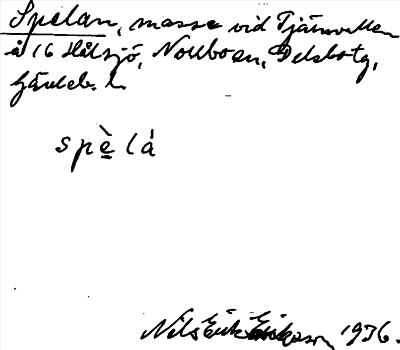 Spelan, mosse vid Tjärnvallen
å 16 Hålsjö, Norrboän, Delsbo tg,
Gävleb. l.
spèlà
Nils Erik Eriksson 1936.